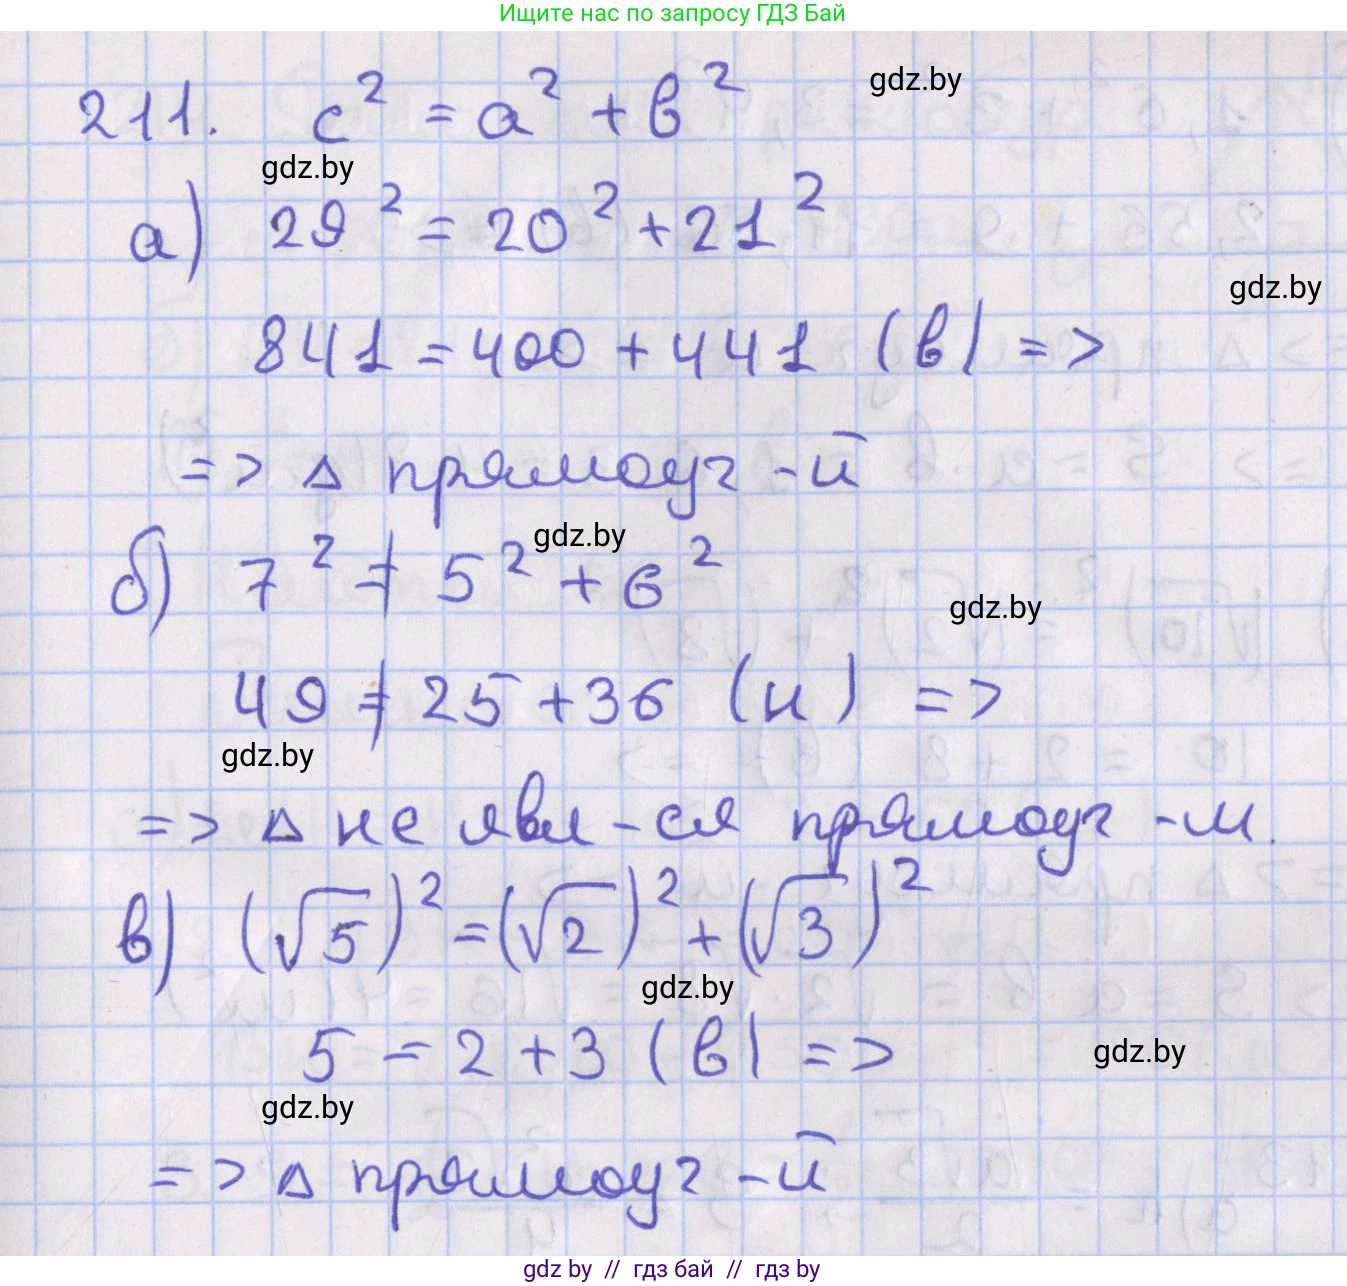 Ищите нас по запросу ГДЗ Бай
211. c² = a² + b²
gdz.by
gdz.by
а) 29² = 20² + 21²
gdz.by
841 = 400 + 441 (в) =>
=> Δ прямоуг-й
gdz.by
б) 7² ≠ 5² + 6²
gdz.by
49 ≠ 25 + 36 (н) =>
gdz.by
=> Δ не явл-ся прямоуг-м.
в) (√5)² = (√2)² + (√3)²
gdz.by
5 = 2 + 3 (в) =>
gdz.by
gdz.by
=> Δ прямоуг-й
gdz by // гдз бай // гдз by